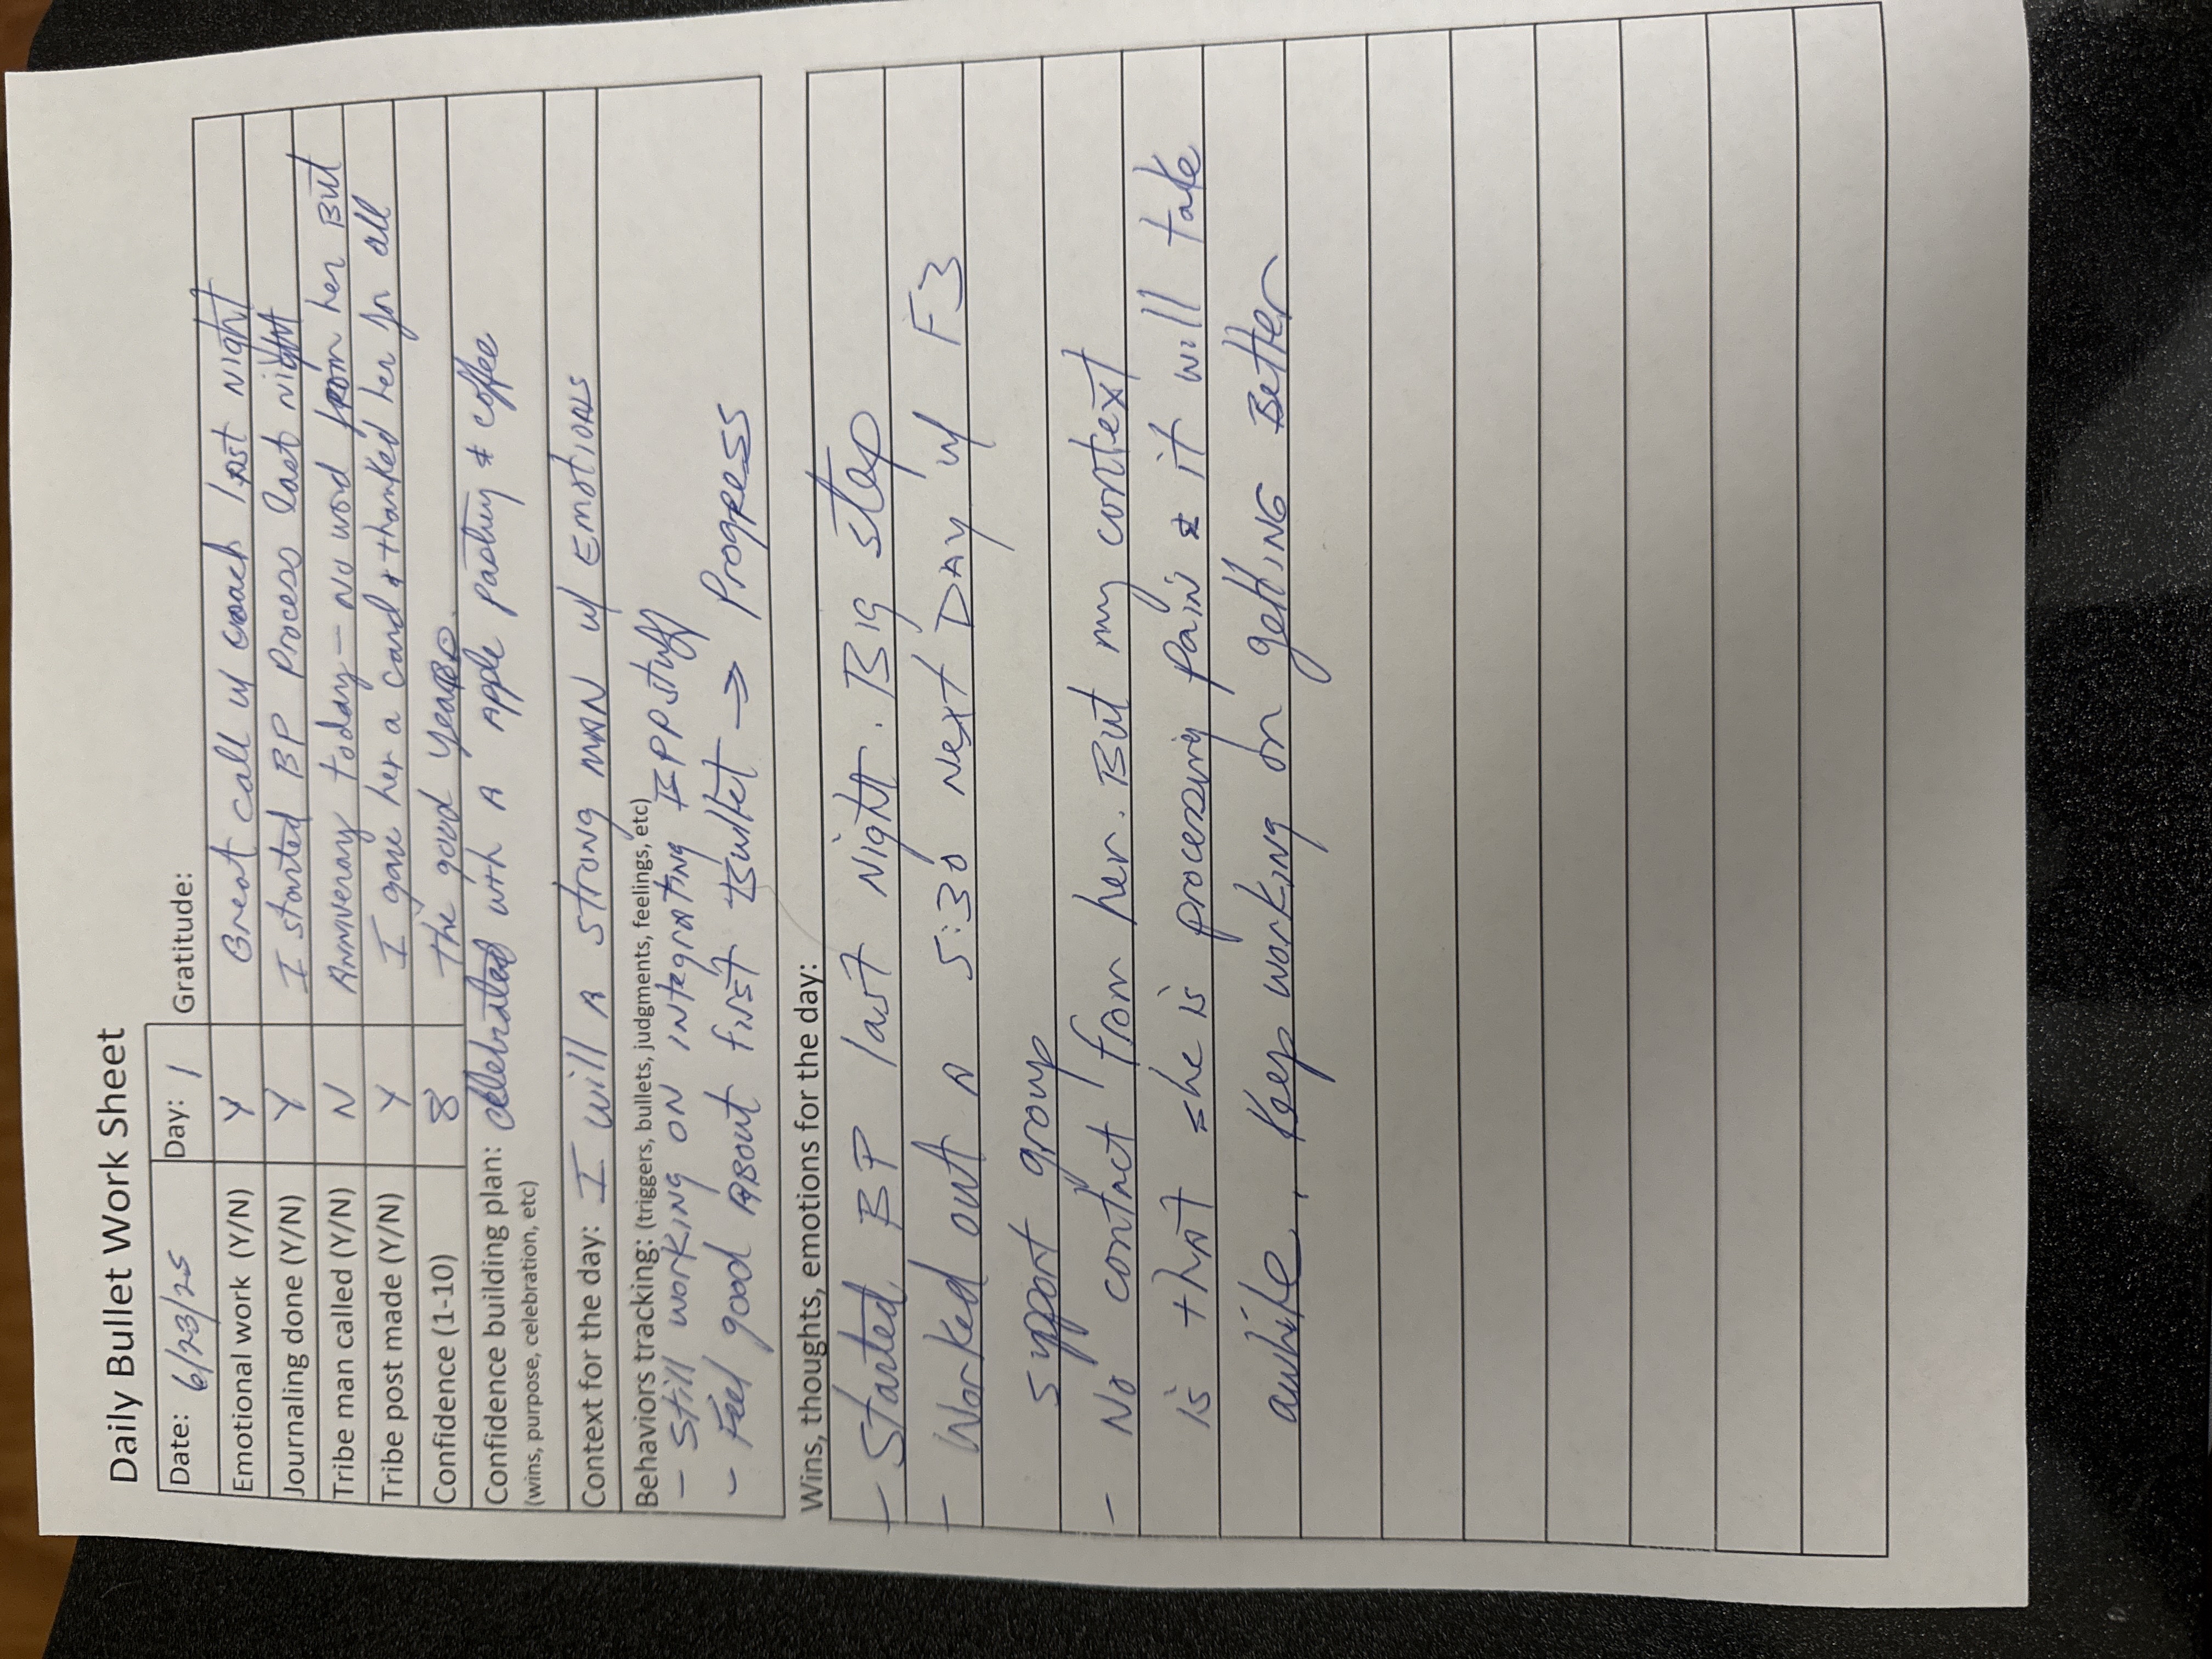 Daily Bullet Work Sheet
Date: 6/23/25 Day: 1 Gratitude:
Emotional work (Y/N) Y Great call w/ coach last night
Journaling done (Y/N) Y I started BP Process last night
Tribe man called (Y/N) N Anniverary today - No word from her But
Tribe post made (Y/N) Y I gave her a card & thanked her for all
Confidence (1-10) 8 the good years.
Confidence building plan: celebrated with A Apple pastry & coffee
(wins, purpose, celebration, etc)
Context for the day: I will A strong MAN w/ EmotioNALs
Behaviors tracking: (triggers, bullets, judgments, feelings, etc)
- Still working ON INtegrating BPP stuff
- Feel good ABout first Bullet → Progress
Wins, thoughts, emotions for the day:
- Started BP last Night. Big step
- Worked out A 5:30 Next Day w/ F3
support group
- No contact from her. But my context
is that she is processing pain & it will take
awhile. Keep working on getting Better